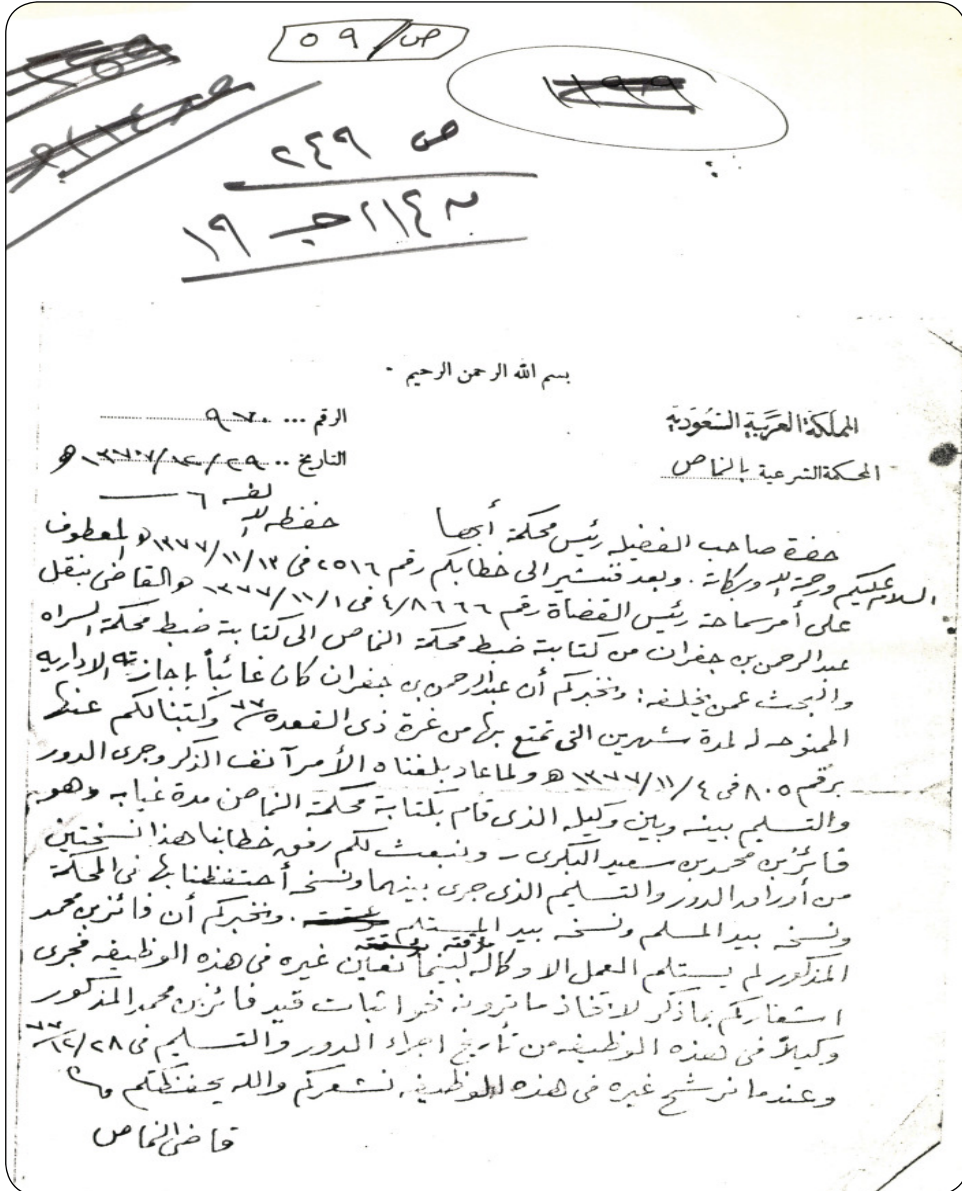 ص/٥٩
١١٩٩
ص ٢٤٩
١١٤ جـ ١٩
بسم الله الرحمن الرحيم -
المملكة العربية السعودية
المحكمة الشرعية بالنماص
الرقم ... ٩٧٠
التاريخ .. ١٣٧٧/١٢/٢٩ هـ
لفه ٦
حضرة صاحب الفضيله رئيس محكمة أبها حفظه الله
السلام عليكم ورحمة الله وبركاته . وبعد فنشير الى خطابكم رقم ٢٥١٦ فى ١٣٧٧/١١/١٣ هـ المعطوف
على أمر سماحة رئيس القضاة رقم ٤/٨٦٦٦ فى ١٣٧٧/١١/١ هـ القاضى بنقل
عبدالرحمن بن جفران من كتابة ضبط محكمة النماص الى كتابة ضبط محكمة السراه
والبحث عمن يخلفه : ونخبركم أن عبدالرحمن بن جفران كان غائباً بإجازته الاداريه
الممنوحه له لمدة شهرين التى تمتع بها من غرة ذى القعدة ٧٧ وكتبنا لكم عنها
برقم ٨٠٥ فى ١٣٧٧/١١/٤ هـ ولما عاد بلغناه الأمر آنف الذكر وجرى الدور
والتسليم بينه وبين وكيله الذى قام بكتابة محكمة النماص مدة غيابه وهو
فائز بن محمد بن سعيد البكرى - ونبعث لكم رفق خطابنا هذا نسختين
من أوراق الدور والتسليم الذى جرى بينهما ونسخه أحتفظنا بها فى المحكمة
ونسخه بيد المسلم ونسخه بيد المستلم . ونخبركم أن فائز بن محمد
المذكور لم يستلم العمل الا وكاله مؤقته لبينما نعين غيره فى هذه الوظيفه فجرى
اشعاركم بما ذكر لاتخاذ ما ترونه نحو اثبات قيد فائز بن محمد المذكور
وكيلاً فى هذه الوظيفه من تأريخ اجراء الدور والتسليم فى ١٢/٢٨/٧٧
وعندما نرشح غيره فى هذه الوظيفه نشعركم والله يحفظكم
قاضى النماص